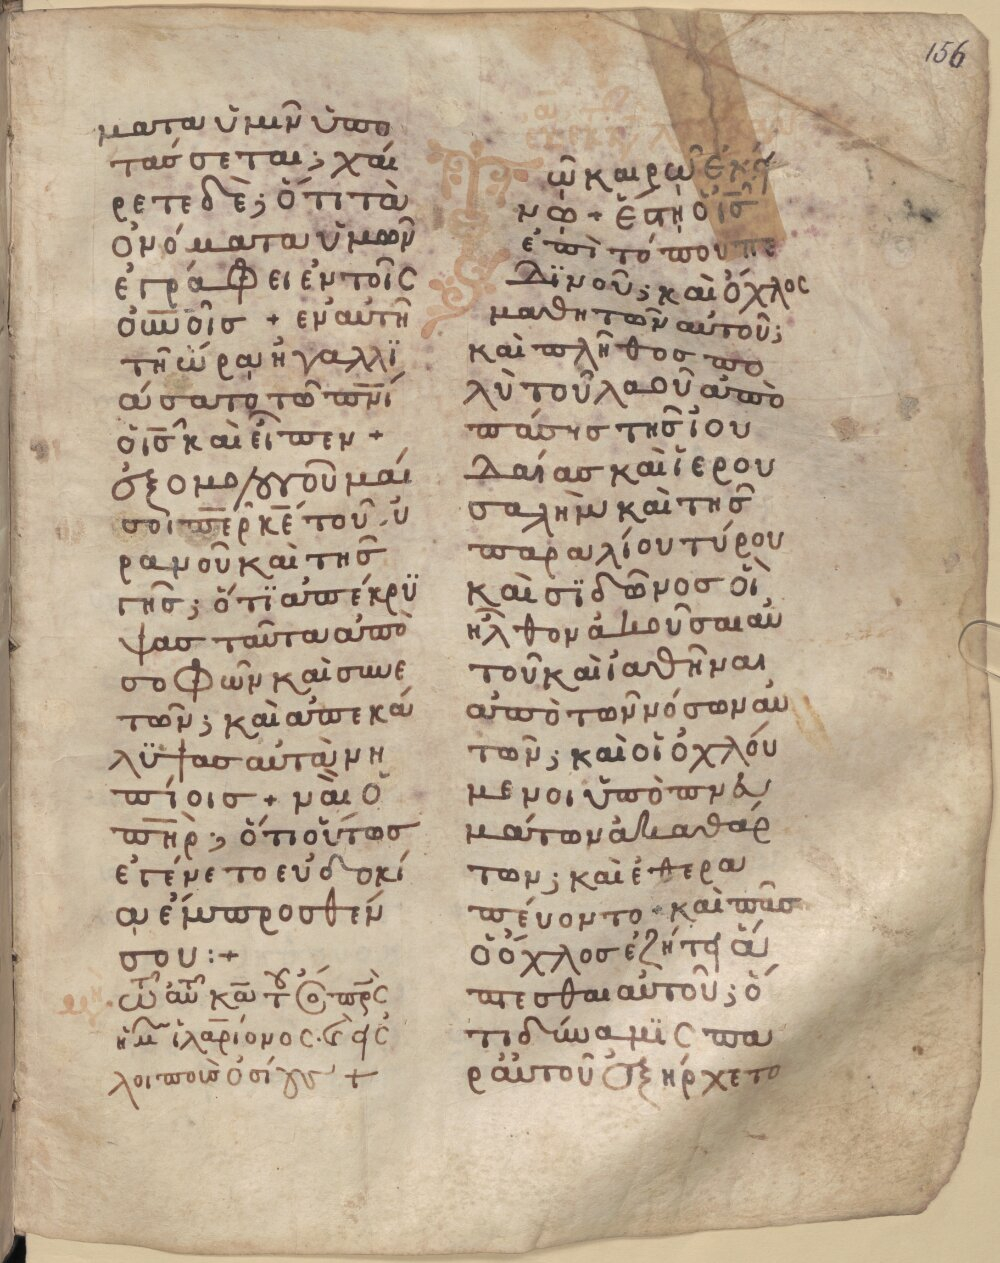 156
ματα ὑμῶν ὑπο
τάσσεται; χαί
ρετε δὲ; ὅτι τὰ
ὀνόματα ὑμῶν
ἐγράφει ἐν τοῖς
οὐνοῖς + ἐν αὐτῆ
τῆ ὥρα ἠγαλλϊ
άσατο τῶ πνΐ
ὁ ις καὶ εἶπεν +
ἐξομολογοῦμαί
σοι περ κε τοῦ οὐ
ρανοῦ καὶ τῆς
γῆς; ὅτϊ ἀπέκρϋ
ψας ταῦτα ἀπὸ
σοφῶν καὶ συνε
τῶν; καὶ ἀπεκά
λϋψας αὐτὰ νη
πίοις + ναὶ ὁ
πηρ; ὅτι οὕτως
ἐγένετο εὐδοκί
α ἔμπροσθέν
σου:+
ἡμ ἱλαρίονος
ῶ καιρῶ ἐκεί
νω + ἔστη ὁ ις
ἐπὶ τόπου πε
δϊνοῦ; καὶ ὄχλος
μαθητῶν αὐτοῦ;
καὶ πλῆθος πο
λὺ τοῦ λαοῦ ἀπὸ
πάσης τῆς ἰου
δαίας καὶ ἱερου
σαλὴμ καὶ τῆς
παραλίου τύρου
καὶ σϊδῶνος οἳ
ἦλθον ἀκοῦσαι αὐ
τοῦ καὶ ἰαθῆναι
ἀπὸ τῶν νόσων αὐ
τῶν; καὶ οἱ ὀχλού
μενοι ὑπὸ πνευ
μάτων ἀκαθάρ
των; καὶ ἐθερα
πεύοντο · καὶ πᾶς
ὁ ὄχλος ἐζήτει ἅ
πτεσθαι αὐτοῦ; ὅ
τι δύναμϊς πα
ρ' αὐτοῦ ἐξήρχετο